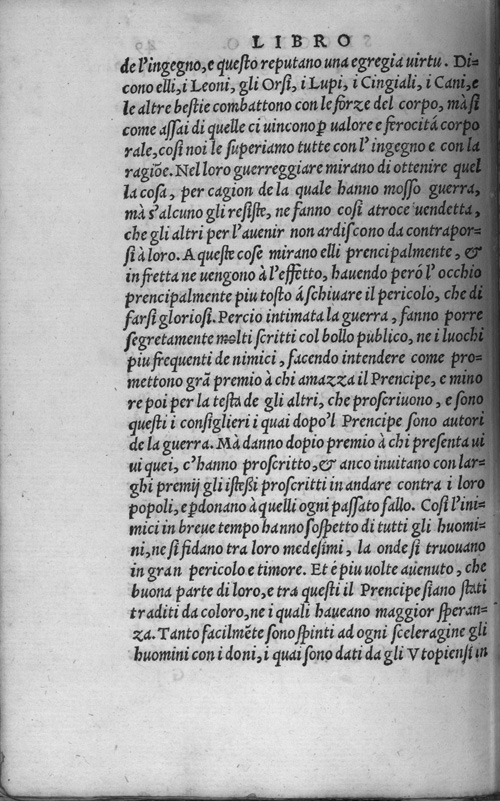 LIBRO
de l'ingegno, e questo reputano una egregia uirtu. Di=
cono elli, i Leoni, gli Orsi, i Lupi, i Cingiali, i Cani, e
le altre bestie combattono con le forze del corpo, mà si
come assai di quelle ci uincono ꝑ ualore e ferocitá corpo
rale, cosi noi le superiamo tutte con l'ingegno e con la
ragiõe. Nel loro guerreggiare mirano di ottenire quel
la cosa, per cagion de la quale hanno mosso guerra,
mà s'alcuno gli resiste, ne fanno cosi atroce uendetta,
che gli altri per l'auenir non ardiscono da contrapor=
si à loro. A queste cose mirano elli prencipalmente, &
in fretta ne uengono à l'effetto, hauendo peró l'occhio
prencipalmente piu tosto á schiuare il pericolo, che di
farsi gloriosi. Percio intimata la guerra, fanno porre
segretamente molti scritti col bollo publico, ne i luochi
piu frequenti de nimici, facendo intendere come pro=
mettono grã premio à chi amazza il Prencipe, e mino
re poi per la testa de gli altri, che proscriuono, e sono
questi i consiglieri i quai dopo'l Prencipe sono autori
de la guerra. Mà danno dopio premio à chi presenta ui
ui quei, c'hanno proscritto, & anco inuitano con lar=
ghi premij gli istessi proscritti in andare contra i loro
popoli, e ꝑdonano à quelli ogni passato fallo. Cosi l'ini=
mici in breue tempo hanno sospetto di tutti gli huomi=
ni, ne si fidano tra loro medesimi, la onde si truouano
in gran pericolo e timore. Et è piu uolte auenuto, che
buona parte di loro, e tra questi il Prencipe siano stati
traditi da coloro, ne i quali haueano maggior speran=
za. Tanto facilmẽte sono spinti ad ogni sceleragine gli
huomini con i doni, i quai sono dati da gli Vtopiensi in